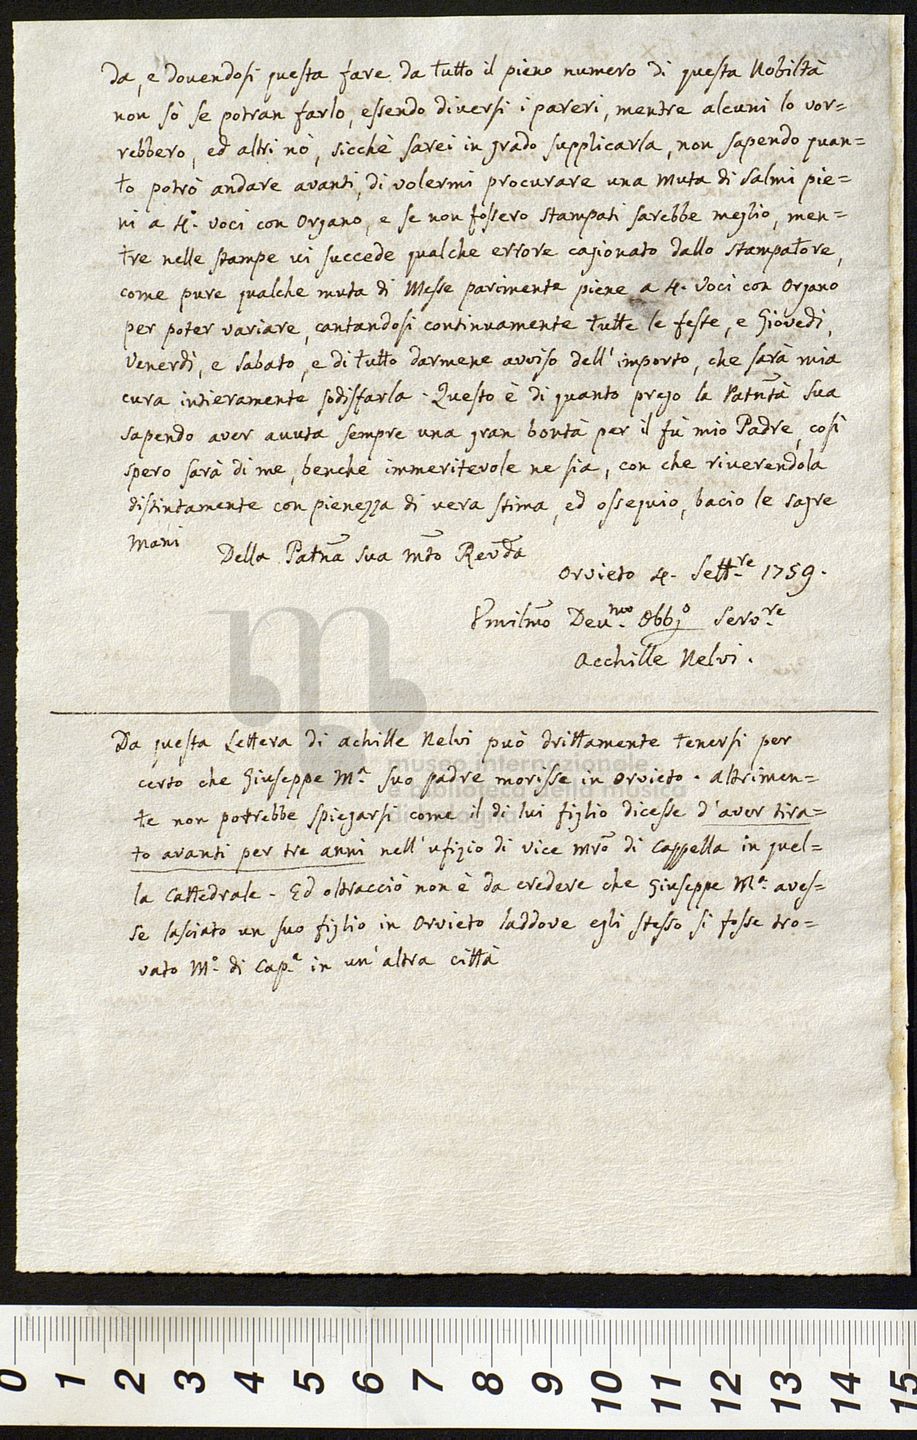 da, e dovendosi questa fare da tutto il pieno numero di questa Nobiltà
non sò se potran farlo, essendo diversi i pareri, mentre alcuni lo vor=
rebbero, ed altri nò, sicchè sarei in grado supplicarla, non sapendo quan=
to potrò andare avanti, di volermi procurare una Muta di Salmi pie=
ni a 4.° voci con Organo, e se non fossero stampati sarebbe meglio, men=
tre nelle stampe vi succede qualche errore cagionato dallo Stampatore,
come pure qualche muta di Messe parimente piene a 4. Voci con Organo
per poter variare, cantandosi continuamente tutte le feste, e Giovedì,
Venerdì, e Sabato, e di tutto darmene avviso dell'importo, che sarà mia
cura intieramente sodisfarla. Questo è di quanto prego la Patntà Sua
sapendo aver avuta sempre una gran bontà per il fù mio Padre, così
spero sarà di me, benche immeritevole ne sia, con che riverendola
distintamente con pienezza di vera stima, ed ossequio, bacio le sagre
Mani
Della Patnà Sua Mto Revda
Orvieto 4. Settre 1759.
Umilmo Devmo Obbgo Servre
Acchille Nelvi.
Da questa Lettera di Achille Nelvi può drittamente tenersi per
certo che Giuseppe Ma. suo padre morisse in Orvieto. Altrimen=
te non potrebbe spiegarsi come il di lui figlio dicesse d'aver tira=
to avanti per tre anni nell'ufizio di vice Mro di Cappella in quel=
la Cattedrale. Ed oltracciò non è da credere che Giuseppe Ma. aves=
se lasciato un suo figlio in Orvieto laddove egli stesso si fosse tro=
vato Mo. di Capa. in un'altra città
museo internazionale
e biblioteca della musica
di bologna
0 1 2 3 4 5 6 7 8 9 10 11 12 13 14 15